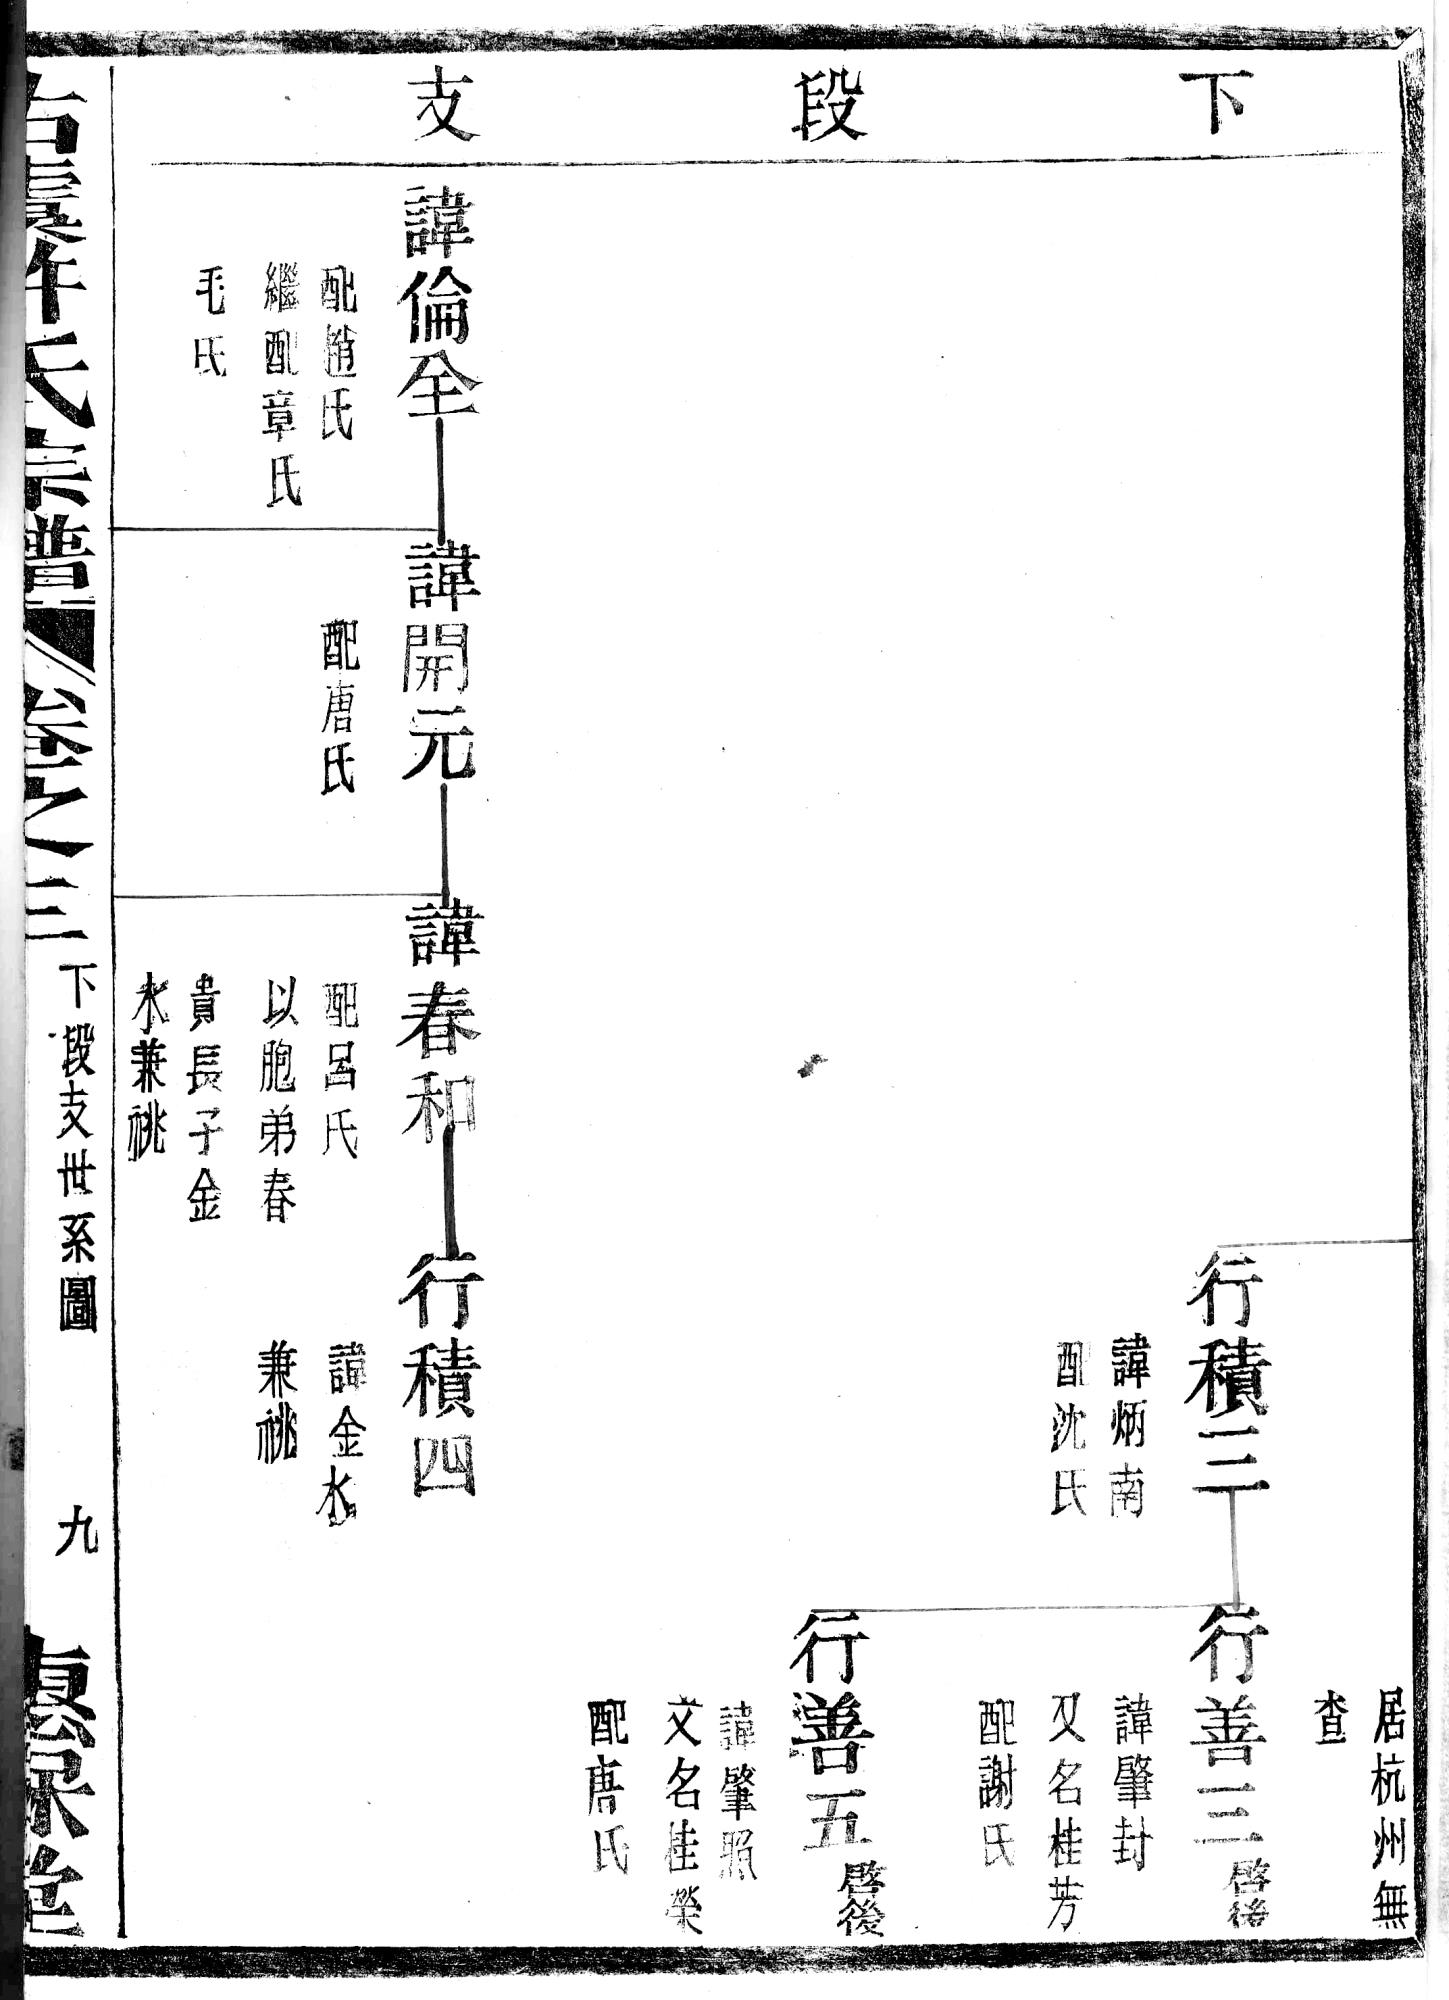 下段支
居杭州無
查
行積三
諱炳南
配沈氏
行善三
啓後
諱肇封
又名桂芳
配謝氏
行善五
啓後
諱肇照
文名桂榮
配唐氏
諱倫全
配趙氏
繼配章氏
毛氏
諱開元
配唐氏
諱春和
配呂氏
以胞弟春
貴長子金
水兼祧
行積四
諱金水
兼祧
古虞許氏宗譜
卷之三
下段支世系圖
九